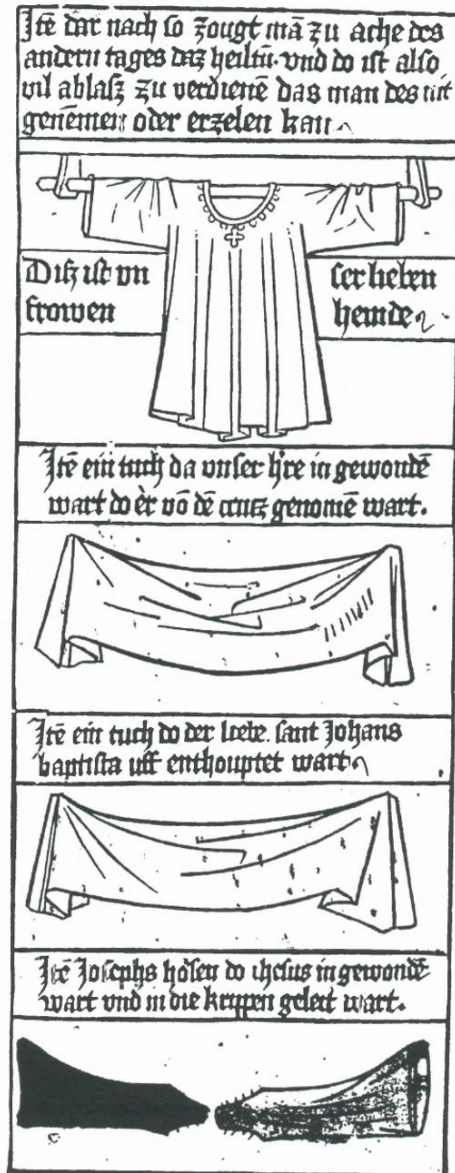 Jtē dar nach so zougt mā zu ache des
andern tages daz heiltū. vnd do ist also
vil ablasz zu verdienē das man des nit
genemen oder erzelen kan
Disz ist vn ser lieben
frowen hemde
Jtē ein tuch da vnser hre in gewondē
wart do er vō dē crutz genomē wart.
Jtē ein tuch do der liebe. sant Johans
baptista uff enthouptet wart
Jtē Josephs hosen do ihesus in gewondē
wart vnd in die krippen geleit wart.